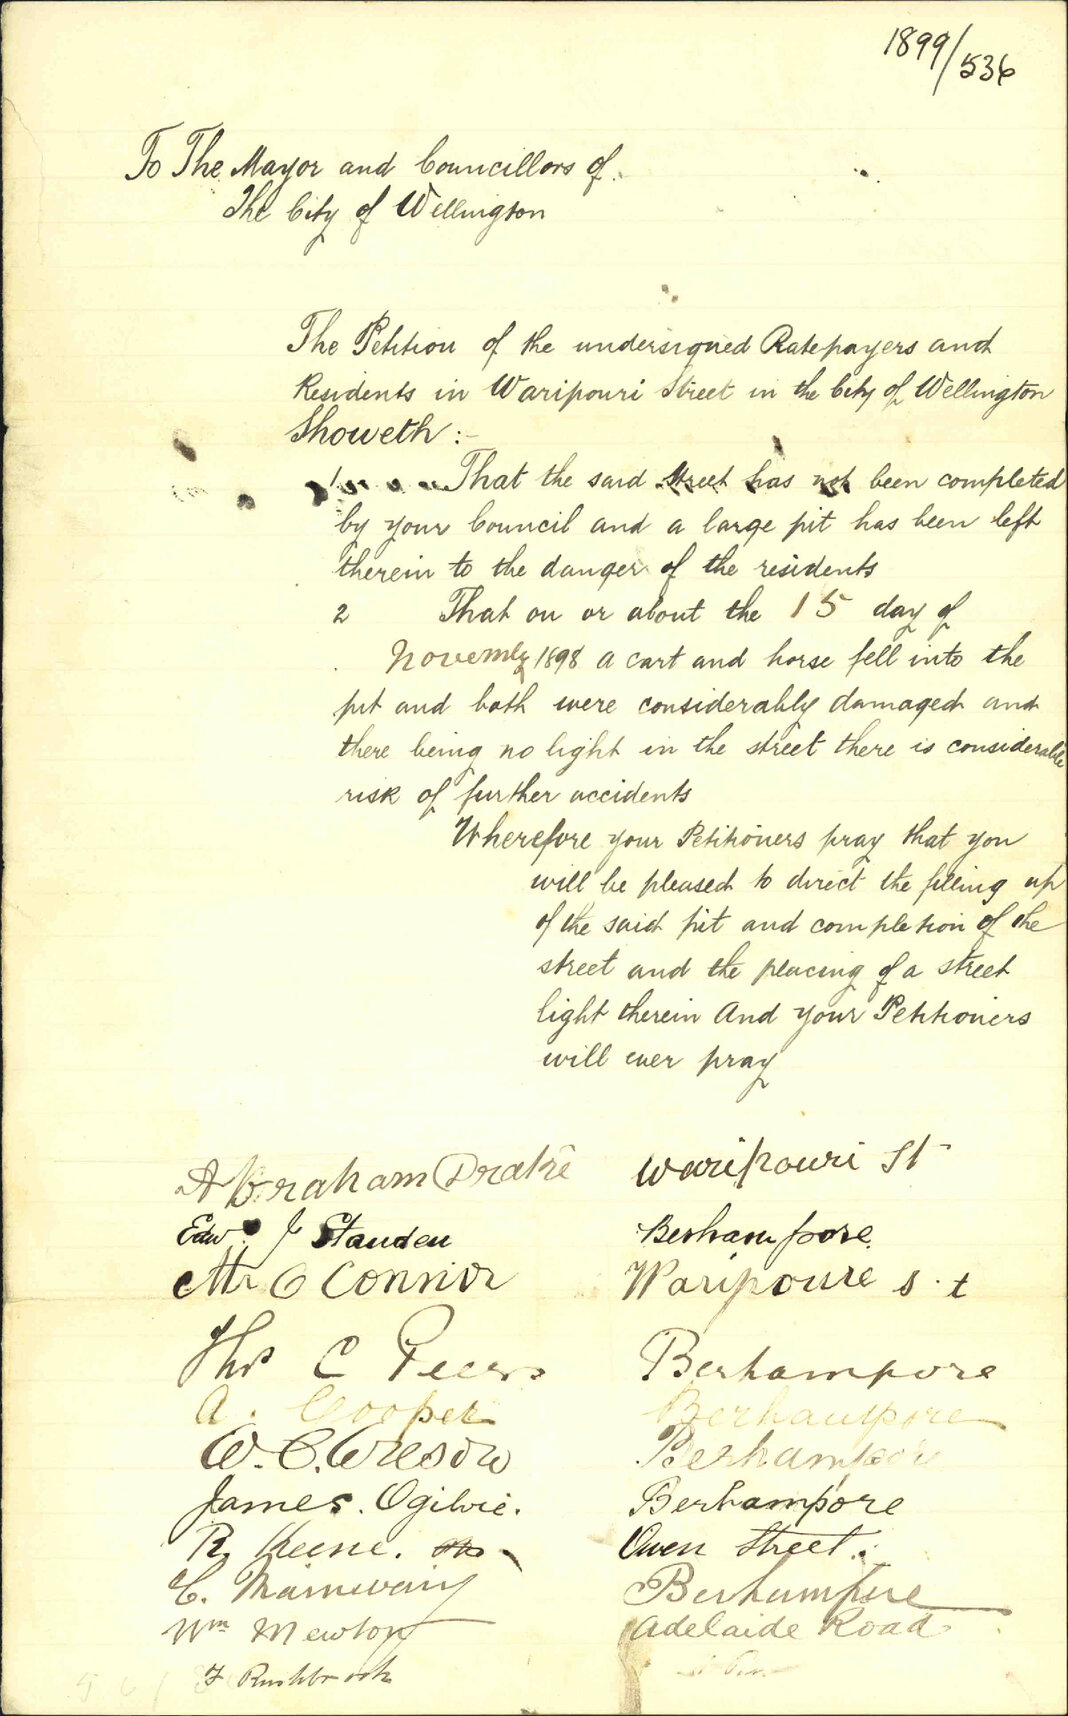 1899/536
To The Mayor and Councillors of
The City of Wellington
The Petition of the undersigned Ratepayers and
Residents in Waripouri Street in the City of Wellington
Showeth :-
1 That the said Street has not been completed
by your Council and a large pit has been left
therein to the danger of the residents
2 That on or about the 15 day of
November 1898 a cart and horse fell into the
pit and both were considerably damaged and
there being no light in the street there is considerable
risk of further accidents
Wherefore your Petitioners pray that you
will be pleased to direct the filling up
of the said pit and completion of the
street and the placing of a street
light therein And your Petitioners
will ever pray
Abraham Drake Waripouri St
Edw. J Standen Berhampore.
Mr O Connor Waripoure s.t
Thos C Peers Berhampore
A. Cooper Berhampore
W. C. Berhampore
James. Ogilvie. Berhampore
R. Keene. Owen Street.
C. Mainwaring Berhampore
Wm Mewton Adelaide Road
F Rushbrook